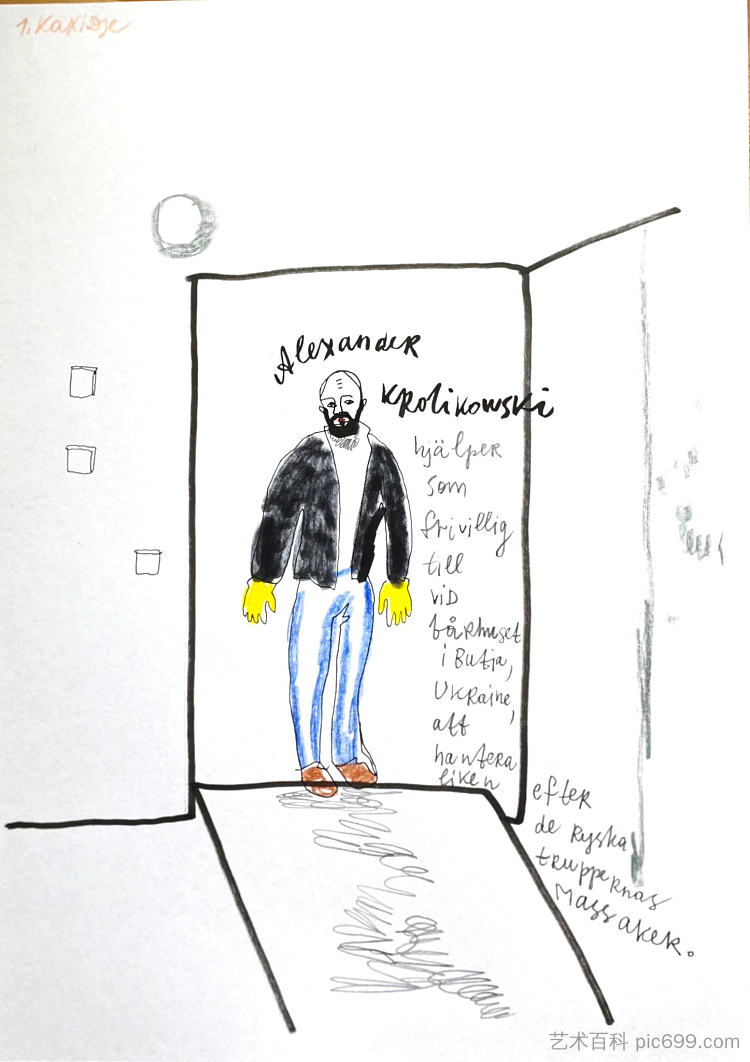 1. Kaxidze
Alexander
Krolikowski
hjälper
som
frivillig
till
vid
bårhuset
i Butja,
Ukraine,
att
hantera
liken
efter
de ryska
truppernas
massaker.
艺术百科 pic699.com